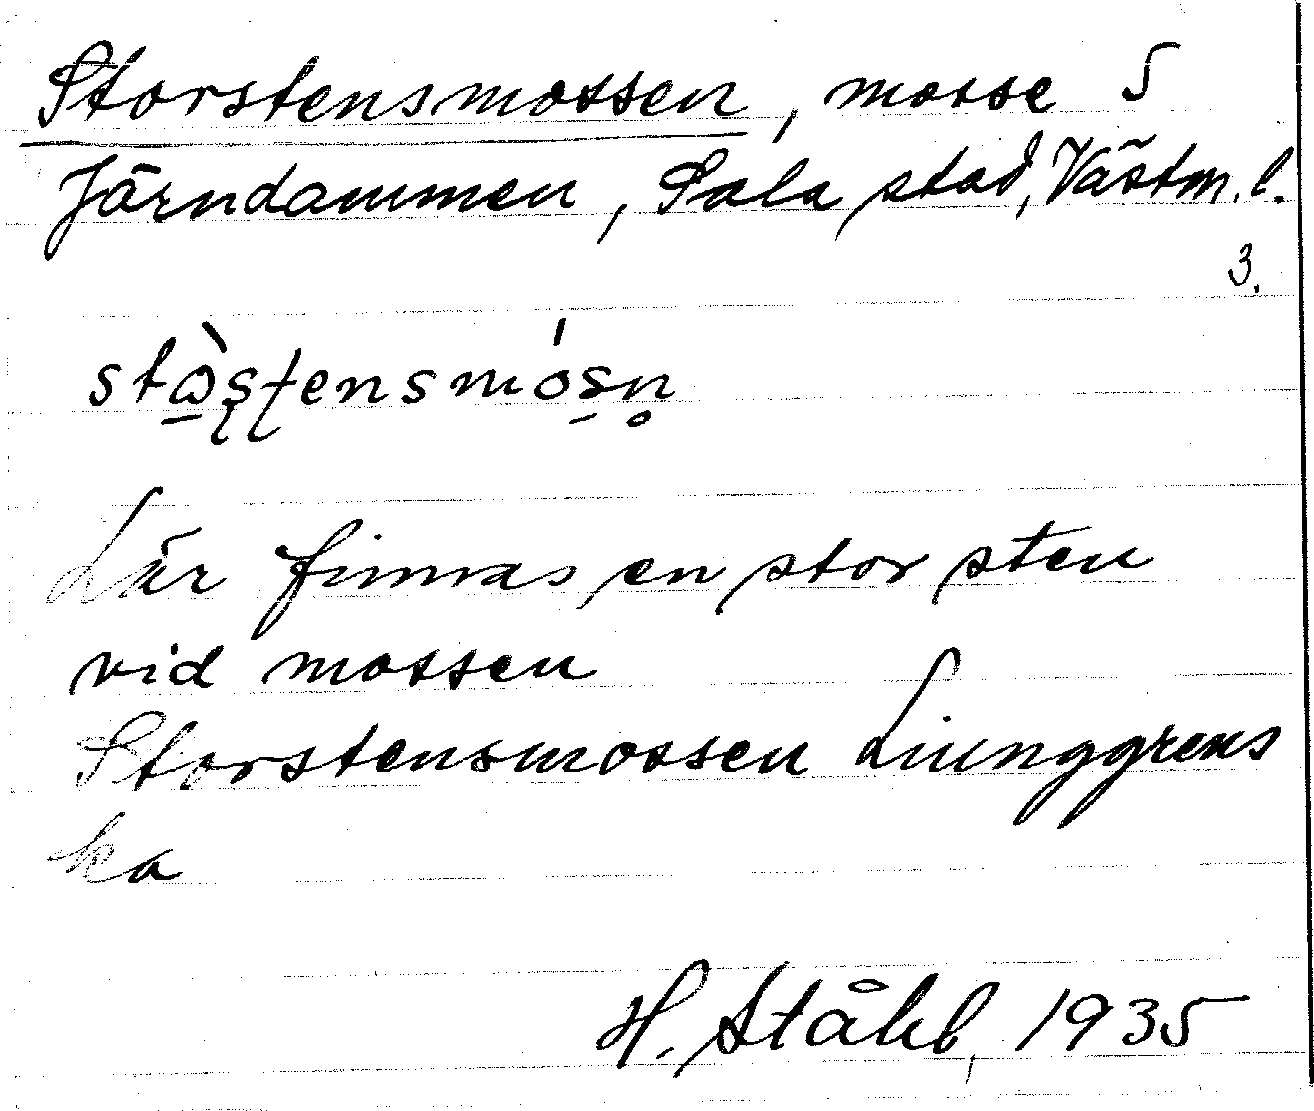 Storstensmossen, mosse S
Järndammen, Sala stad, Västm. l.
3.
Lär finnas en stor sten
vid mossen
Storstensmossen Liunggrens
ka
H. Ståhl, 1935